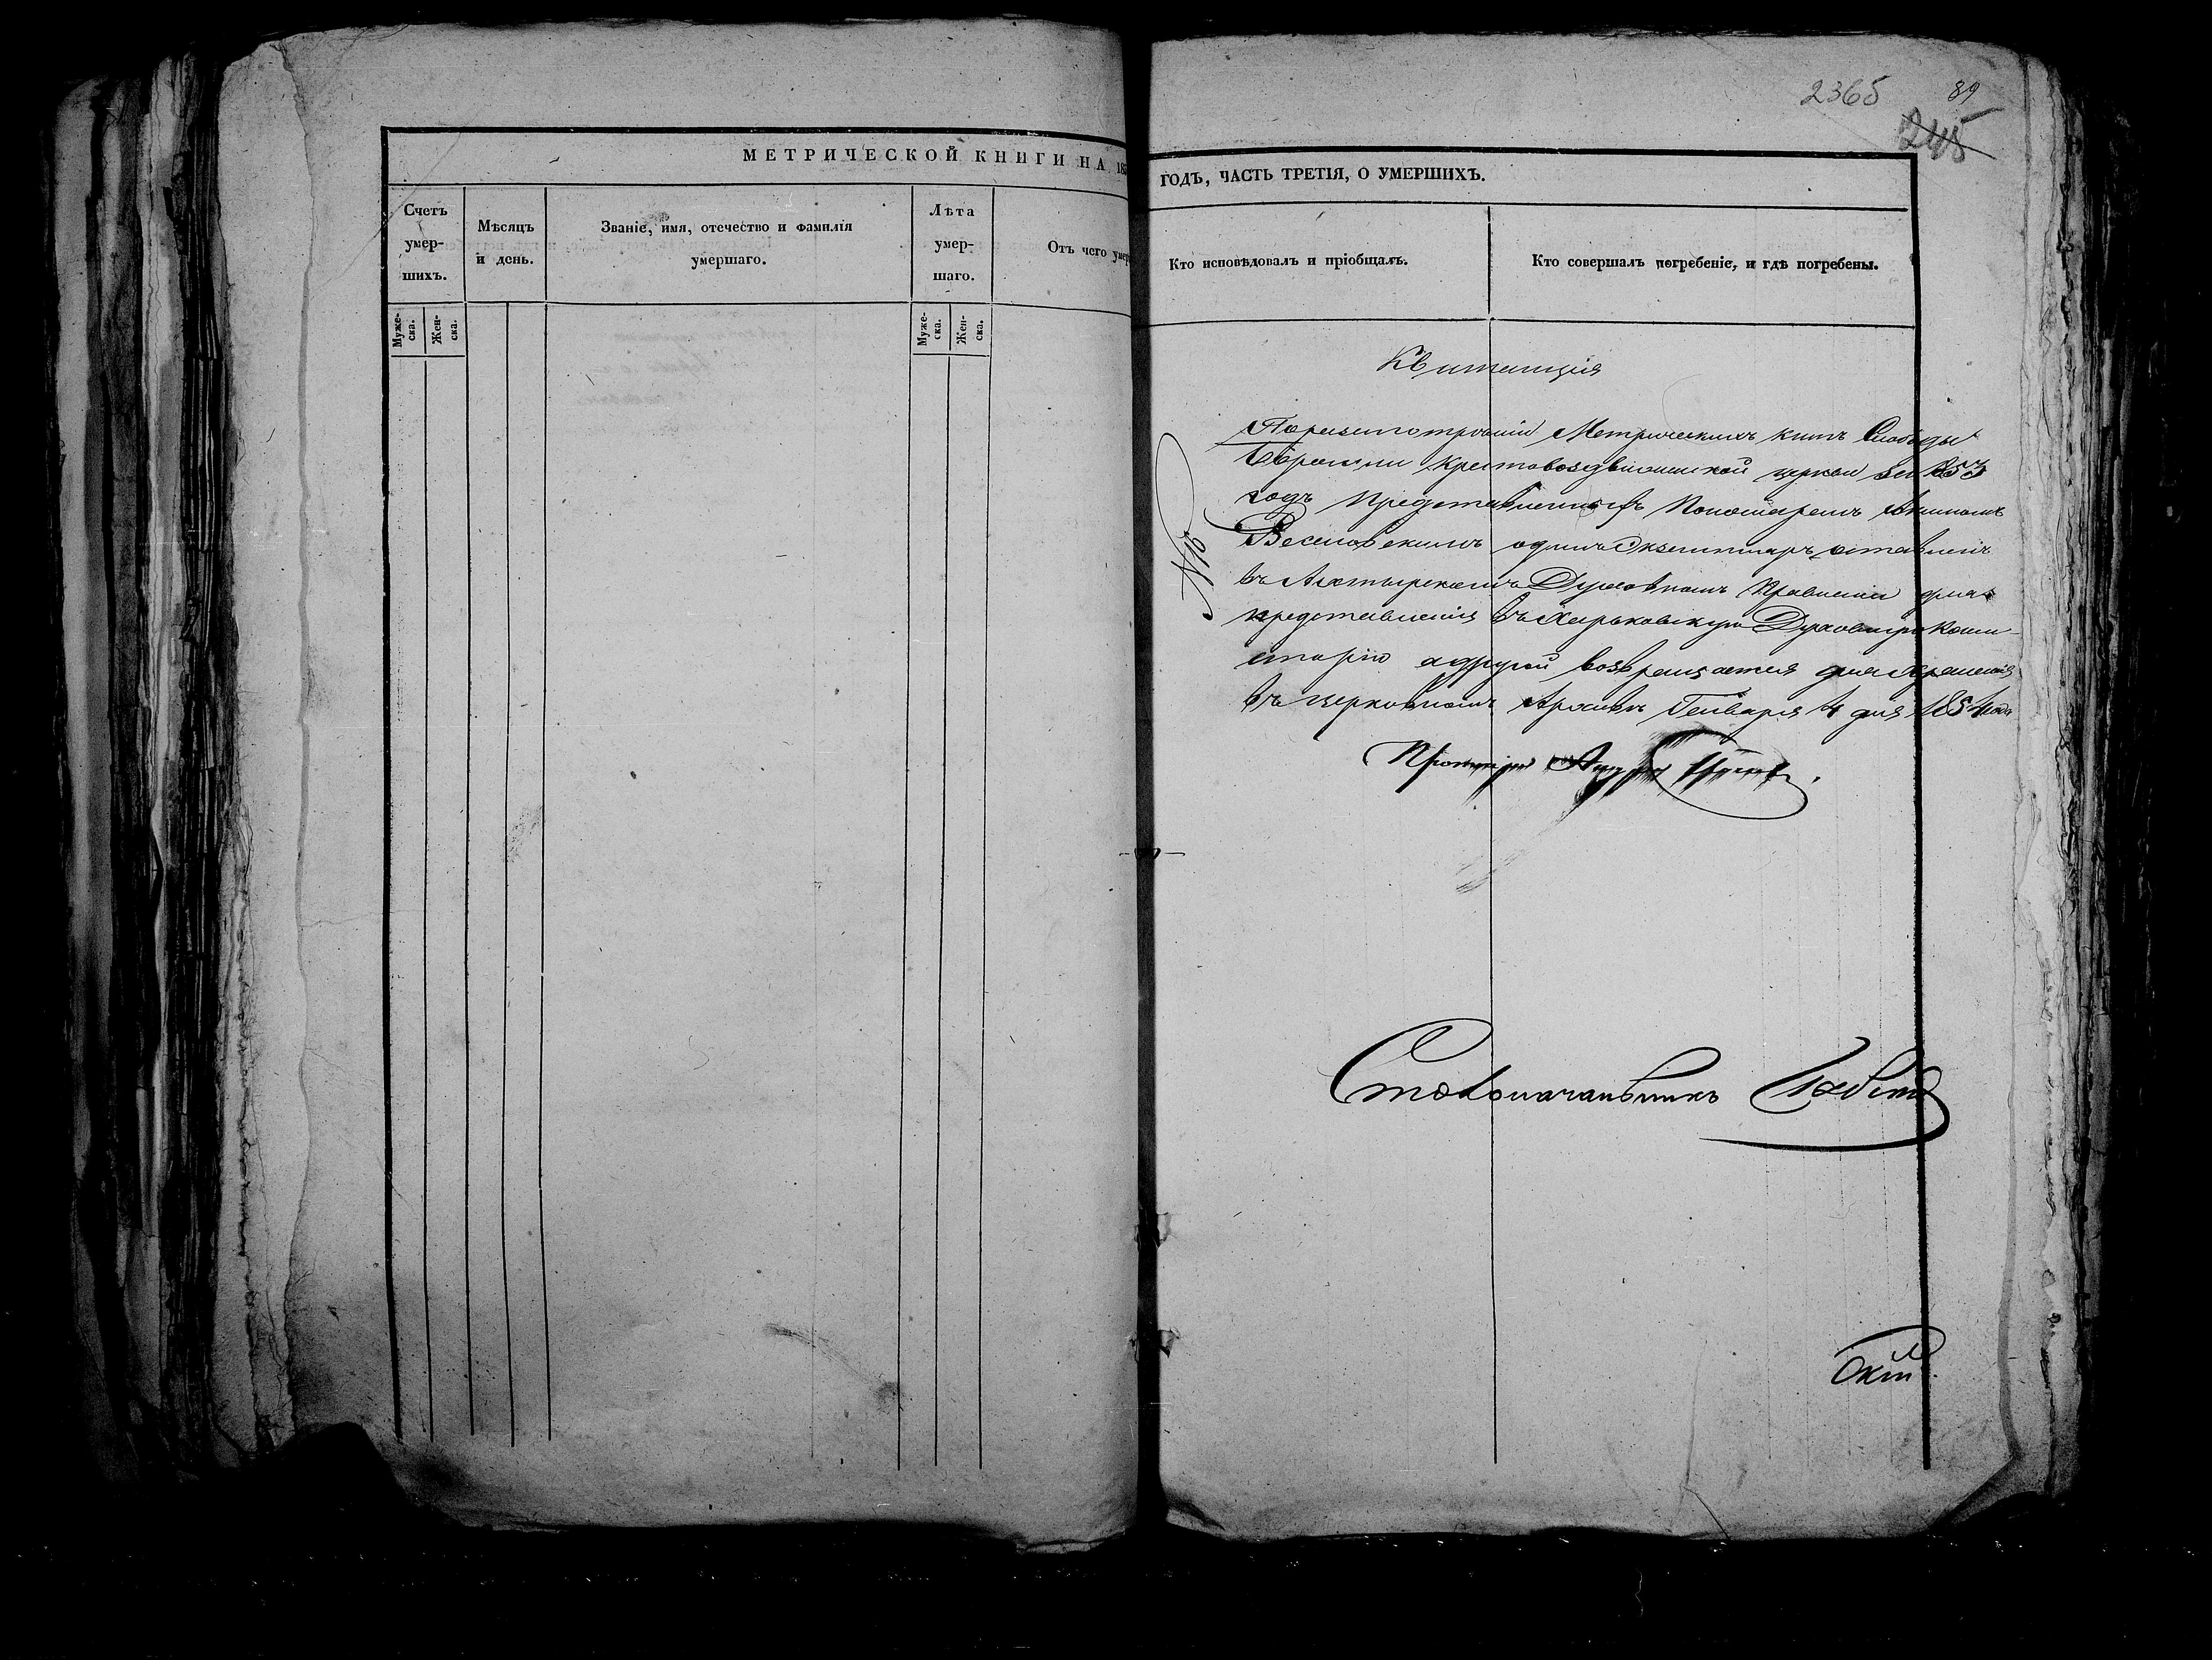 МЕТРИЧЕСКОЙ КНИГИ НА 185
Счетъ умер-шихъ.
Мѣсяцъ и день.
Званіе, имя, отечество и фамилія умершаго.
Лѣта умер-шаго.
Отъ чего умер
Муже-ска.
Жен-ска.
Муже-ска.
Жен-ска.
2365
89
245
ГОДЪ, ЧАСТЬ ТРЕТІЯ, О УМЕРШИХЪ.
Кто исповѣдовалъ и пріобщалъ.
Кто совершалъ погребеніе, и гдѣ погребены.
Квитанція
По разсмотреніи Метрическихъ книгъ Слободы
Крестовоздвиженской церкви за 1853
годъ представленныхъ Пономаремъ
Веселовскимъ одинъ Экземпляръ оставленъ
въ Ахтырскомъ Духовномъ Правленіи для
представленія въ Харьковскую Духовную Конси-
сторію а другой возвращается для храненія
въ церковномъ Архивѣ Генваря 4 дня 1854 года
№
Протоіерей
Столоначальникъ